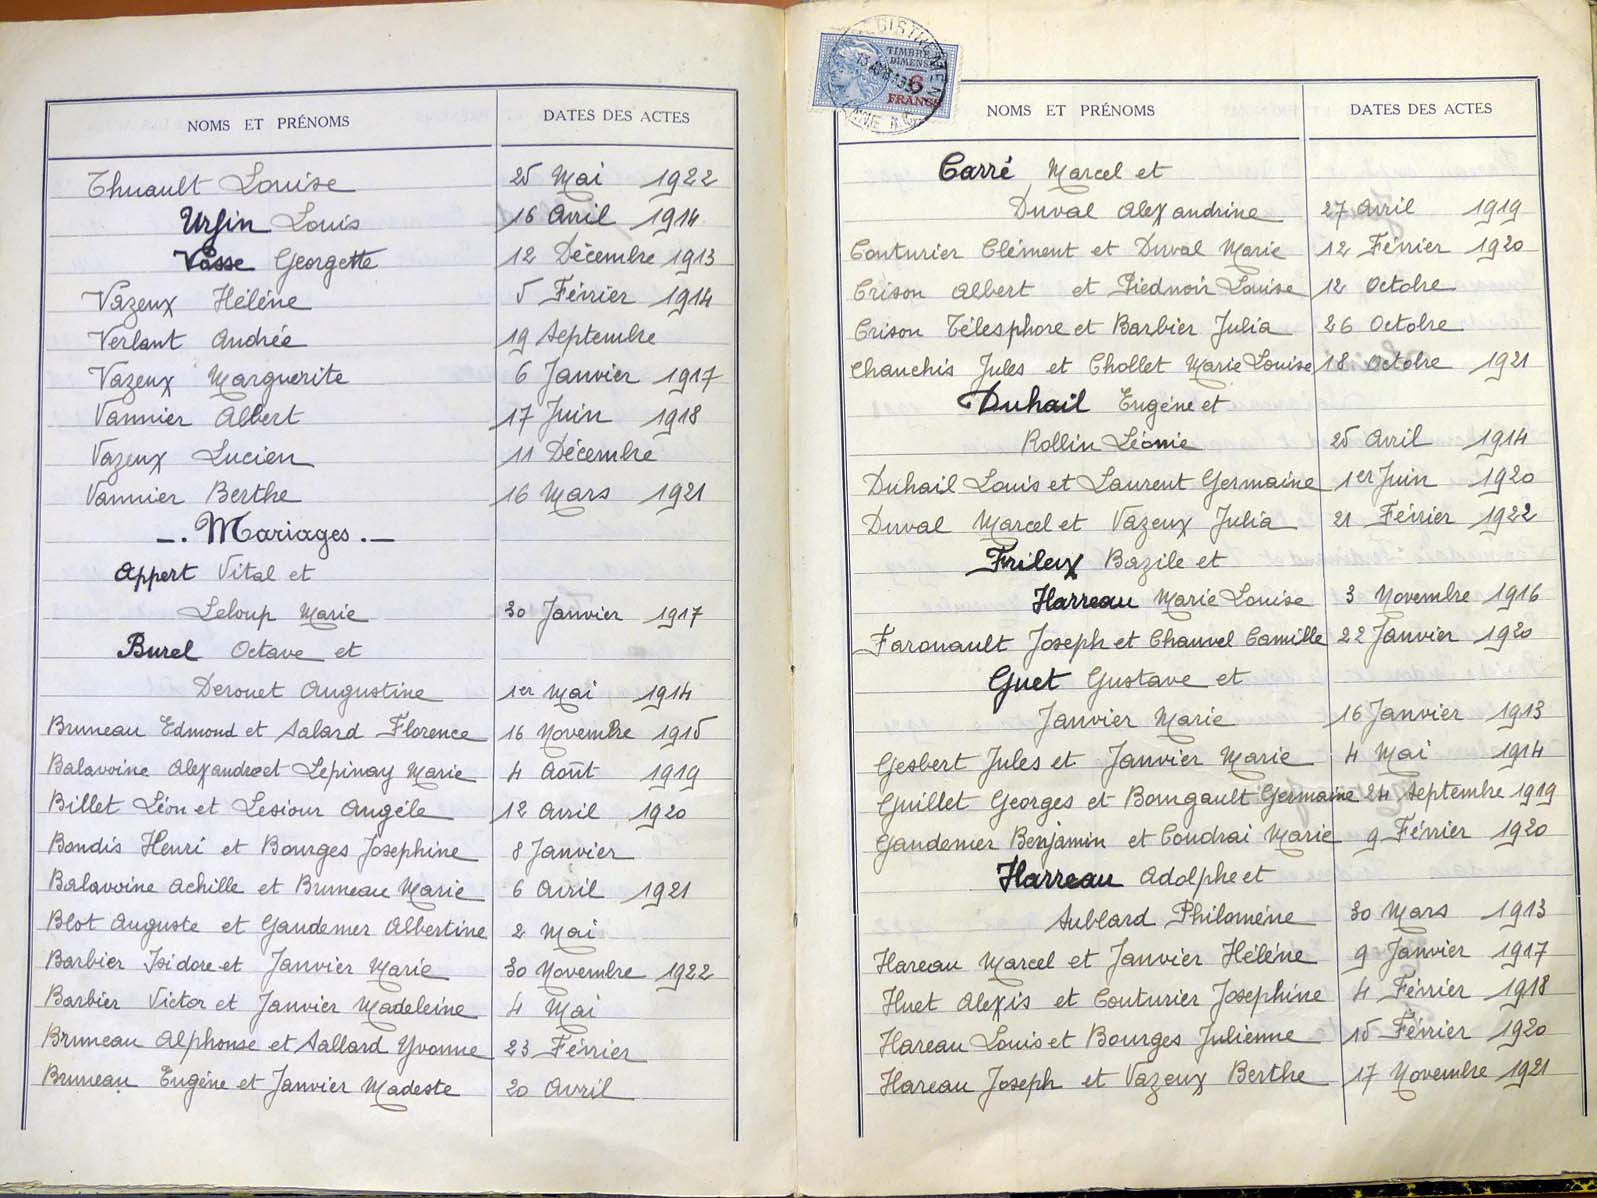 NOMS ET PRÉNOMS DATES DES ACTES
Thuault Louise 25 Mai 1922
Ursin Louis 16 Avril 1914
Vasse Georgette 12 Décembre 1913
Vazeux Hélène 5 Février 1914
Verlant Andrée 19 Septembre
Vazeux Marguerite 6 Janvier 1917
Vannier Albert 17 Juin 1918
Vazeux Lucien 11 Décembre
Vannier Berthe 16 Mars 1921
—. Mariages .—
Appert Vital et
Leloup Marie 30 Janvier 1917
Burel Octave et
Derouet Augustine 1er Mai 1914
Bruneau Edmond et Salard Florence 16 Novembre 1915
Balavoine Alexandre et Lepinay Marie 4 Août 1919
Billet Léon et Lesiour Angèle 12 Avril 1920
Bondis Henri et Bourges Joséphine 8 Janvier
Balavoine Achille et Bruneau Marie 6 Avril 1921
Blot Auguste et Gandemer Albertine 2 Mai
Barbier Isidore et Janvier Marie 30 Novembre 1922
Barbier Victor et Janvier Madeleine 4 Mai
Bruneau Alphonse et Sallard Yvonne 23 Février
Bruneau Eugène et Janvier Madeste 20 Avril
TIMBRE
DIMENSI
6
FRANCS
NOMS ET PRÉNOMS DATES DES ACTES
Carré Marcel et
Duval Alexandrine 27 Avril 1919
Couturier Clément et Duval Marie 12 Février 1920
Crison Albert et Piednoir Louise 12 Octobre
Crison Télesphore et Barbier Julia 26 Octobre
Chanchis Jules et Chollet Marie Louise 18 Octobre 1921
Duhail Eugène et
Rollin Léonie 25 Avril 1914
Duhail Louis et Laurent Germaine 1er Juin 1920
Duval Marcel et Vazeux Julia 21 Février 1922
Frileux Bazile et
Harreau Marie Louise 3 Novembre 1916
Farouault Joseph et Chauvel Camille 22 Janvier 1920
Guet Gustave et
Janvier Marie 16 Janvier 1913
Gesbert Jules et Janvier Marie 4 Mai 1914
Guillet Georges et Bourgault Germaine 24 Septembre 1919
Gandemer Benjamin et Coudrai Marie 9 Février 1920
Harreau Adolphe et
Aublard Philomène 30 Mars 1913
Hareau Marcel et Janvier Hélène 9 Janvier 1917
Huet Alexis et Couturier Joséphine 4 Février 1918
Hareau Louis et Bourges Julienne 15 Février 1920
Hareau Joseph et Vazeux Berthe 17 Novembre 1921